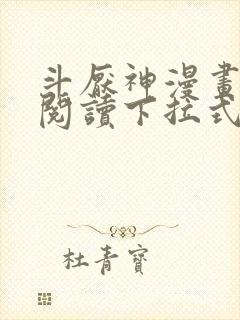 斗厭神漫畫
閱讀下拉式
杜青寶